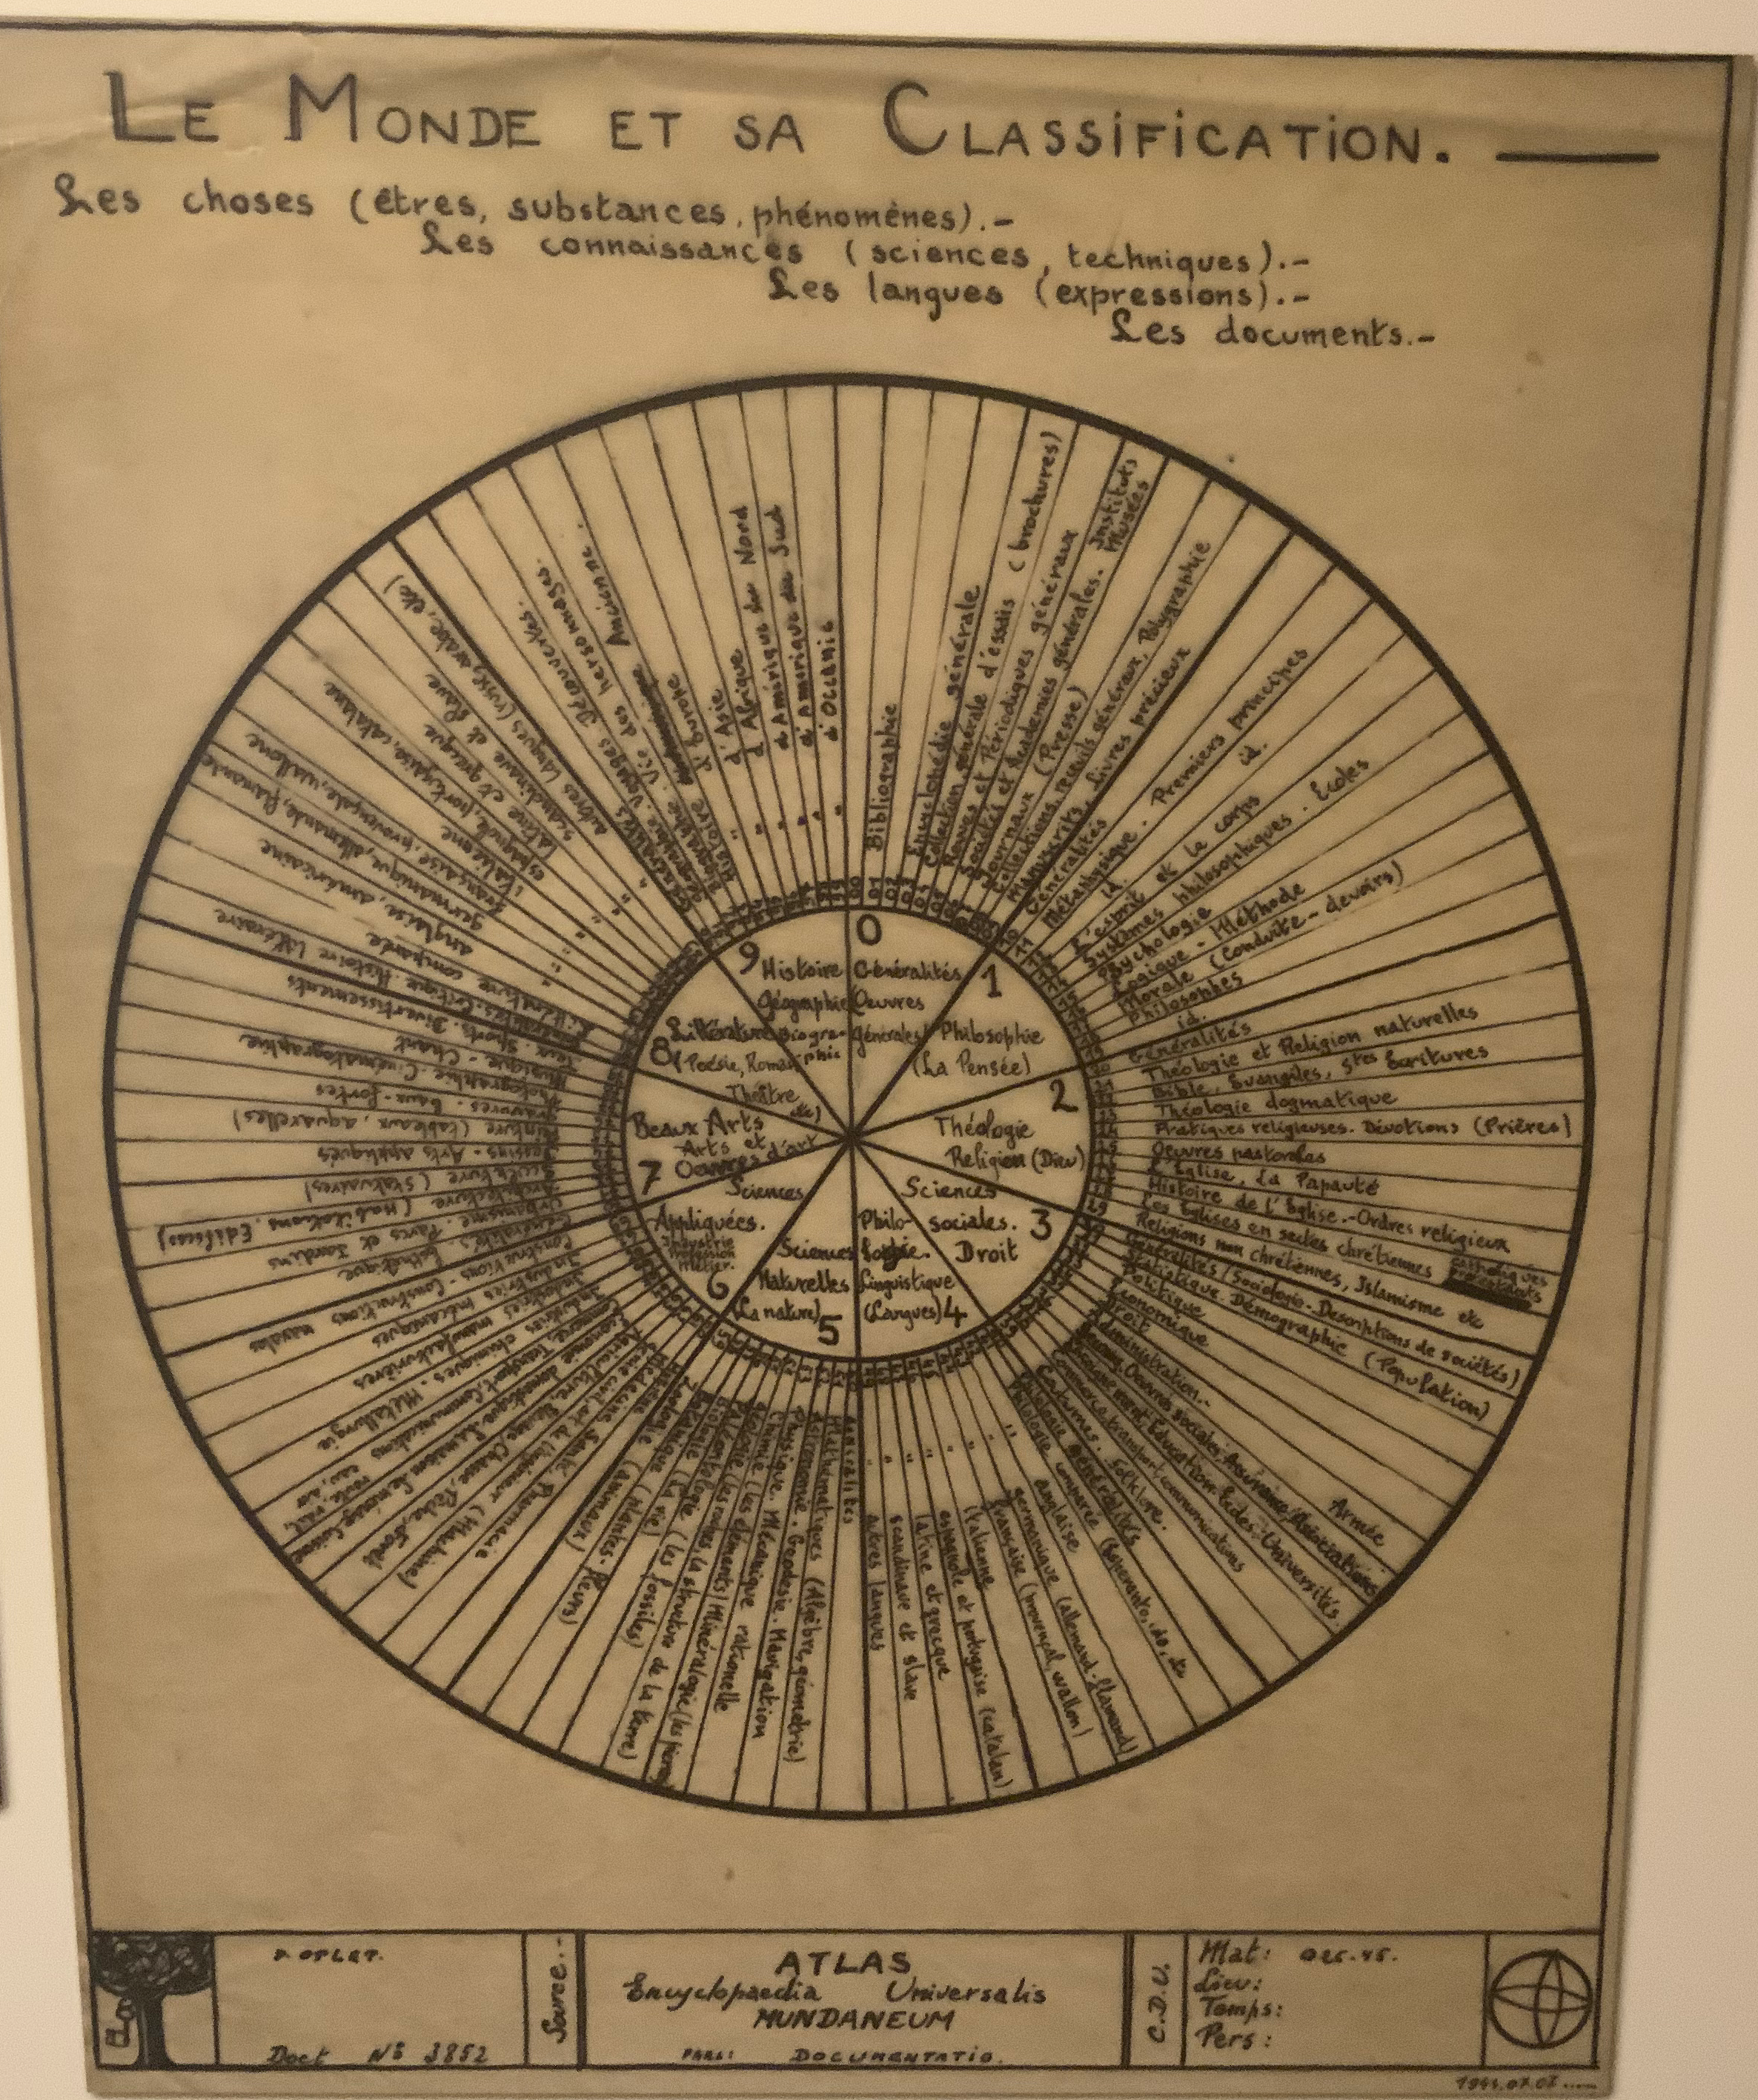 LE MONDE ET SA CLASSIFICATION.
Les choses (êtres, substances, phénomènes).-
Les connaissances (sciences, techniques).-
Les langues (expressions).-
Les documents.-
0
Généralités
Oeuvres
Générales
1
Philosophie
(La Pensée)
2
Théologie
Religion (Dieu)
3
Sciences
sociales.
Droit
4
Philo-
logie.
Linguistique
(Langues)
5
Sciences
Naturelles
(La nature)
6
Sciences
Appliquées.
Industrie
Profession
Métier.
7
Beaux Arts
Arts et
Oeuvres d'art
8
Littérature
Poésie, Roman
Théâtre
etc)
9
Histoire
Géographie
Biogra-
phie
Bibliographie
Encyclopédie générale
Collection générale d'essais (brochures)
Revues et Périodiques généraux
Sociétés et Academies générales. Instituts
Musées
Journaux (Presse)
Collections, recueils généraux, Polygraphie
Manuscrits, Livres précieux
Généralités
Métaphysique. Premiers principes
id. id.
L'esprit et le corps
Systèmes philosophiques. Ecoles
Psychologie
Logique - Méthode
Morale (Conduite - devoirs)
Philosophes
id.
Généralités
Théologie et Religion naturelles
Bible, Evangiles, Stes Ecritures
Théologie dogmatique
Pratiques religieuses. Dévotions (Prières)
Oeuvres pastorales
L'Eglise, La Papauté
Histoire de l'Eglise.-Ordres religieux
Les Eglises en sectes chrétiennes
Religions non chrétiennes, Islamisme etc
Généralités (Sociologie-Descriptions de sociétés)
Statistique. Démographie (Population)
Politique
Economique
Droit
Administration.- Armée
Oeuvres sociales, Assurance, Associations
Enseignement, Education. Ecoles. Universités.
Commerce, transport, communications
Coutumes. Folklore.
Philologie généralités
Philologie comparée (Esperanto, ido, etc
" anglaise
" germanique (allemand-flamand)
" française (provençal, wallon)
" italienne
" espagnole et portugaise (catalan)
" latine et grecque
" scandinave et slave
" autres langues
Généralités
Mathématiques (Algèbre, géométrie)
Astronomie. Geodesie. Navigation
Physique. Mécanique rationnelle
Chimie (les éléments) Minéralogie (les pierres)
Géologie (les roches, la structure de la terre)
Paléontologie (les fossiles)
Biologie (la vie)
Botanique (plantes-fleurs)
Zoologie (animaux)
Médecine Santé, Pharmacie
Génie civil, art de l'ingénieur (Machine)
Agriculture, Chasse, Pêche, Forêt
Industries chimiques. Métallurgie
Industries manufacturières
Industries mécaniques
Constructions - Constructions navales
Généralités. Esthétique
Urbanisme. Parcs et Jardins
Architecture (Habitations. Edifices)
Sculpture (Statuaires)
Dessins. Arts appliqués
Peinture (tableaux, aquarelles)
Gravures. Eaux-fortes
Photographie. Cinématographie
Musique - Chant
Jeux. Sports. Divertissements
Généralités. Critique. Histoire littéraire
Littérature comparée
" anglaise, américaine
" germanique, allemande, flamande
" française, provençale, wallone
" italienne
" espagnole, portugaise, catalane
" latine et grecque
" scandinave et slave
" autres langues (russe, arabe, etc)
Généralités
Géographie. Voyages. Découvertes.
Biographie. Vie des personnages.
Histoire Ancienne.
" d'Europe
" d'Asie
" d'Afrique
" d'Amérique du Nord
" d'Amérique du Sud
" d'Océanie
P. OTLET.
Doct Nº 3852
Source.-
ATLAS
Encyclopaedia Universalis
MUNDANEUM
PARS: DOCUMENTATIO.
C.D.U.
Mat: 025.45.
Lieu:
Temps:
Pers: